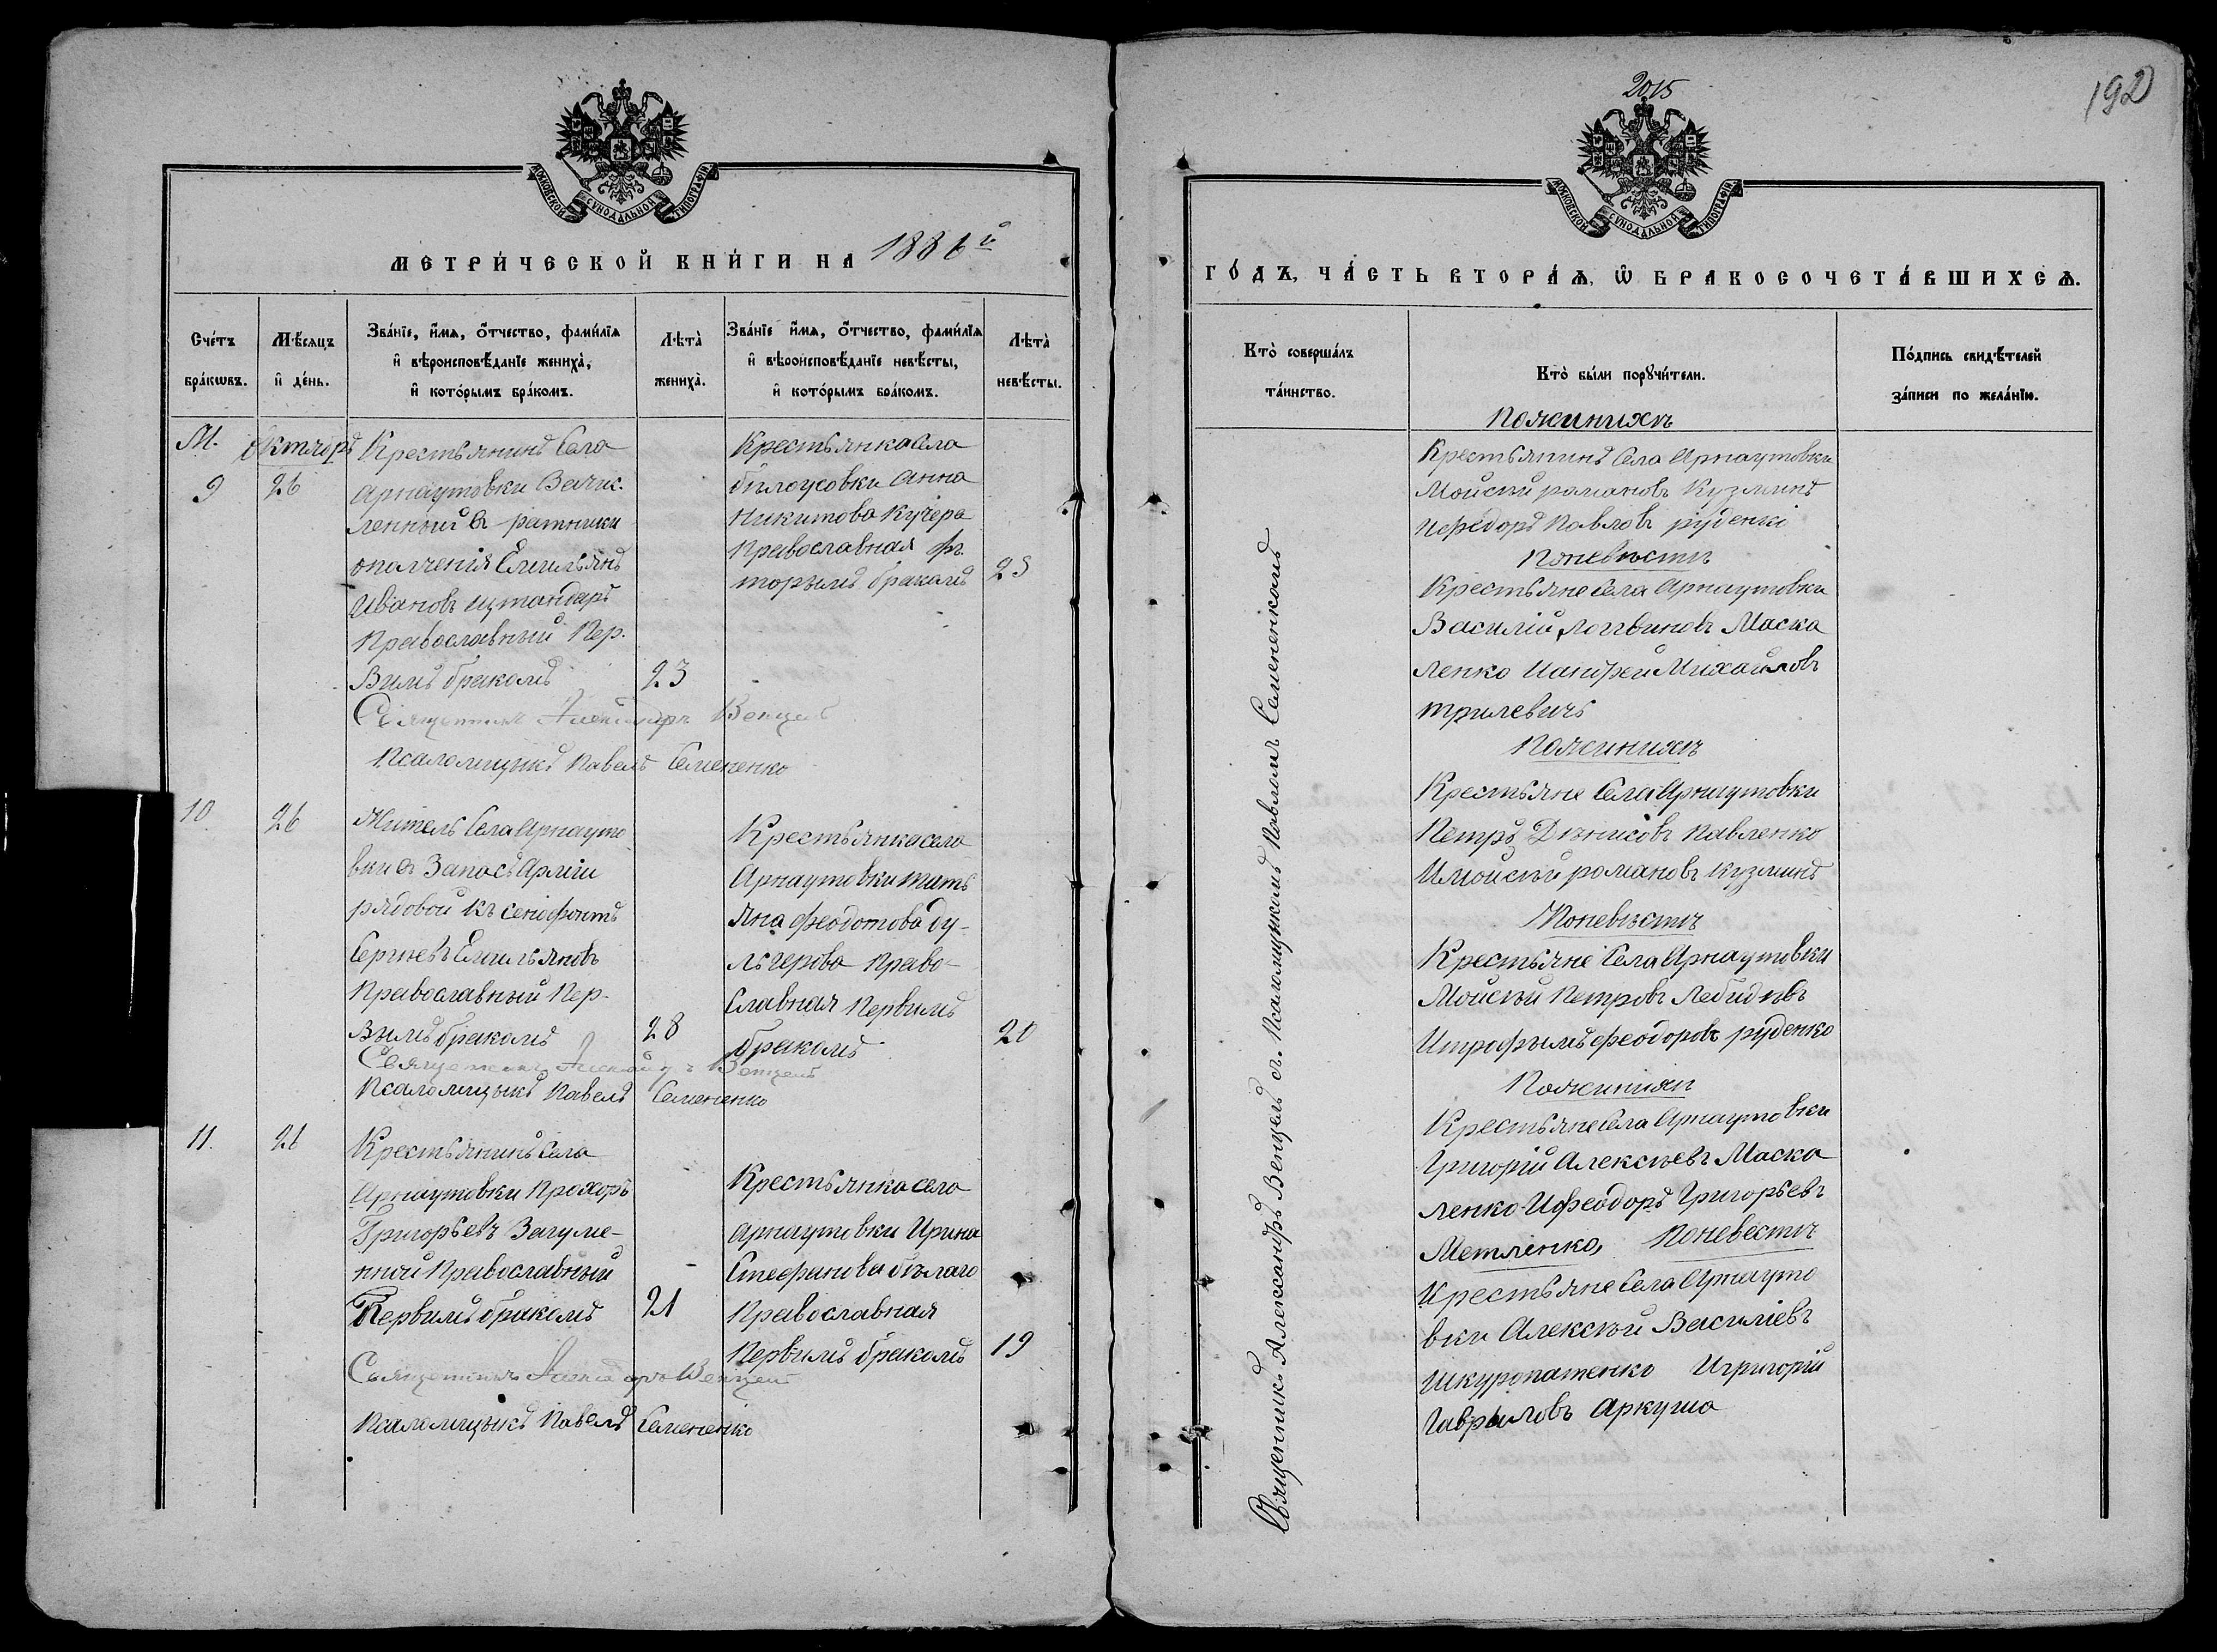 МОСКОВСКОЙ СѴНОДАЛЬНОЙ ТИПОГРАФІИ
МЕТРИ́ЧЕСКОЙ КНИ́ГИ НА 1886й
Сче́тъ бра́кѡвъ.
Мѣ́сяцъ и҆ де́нь.
Зва́нїе, и҆́мѧ, ѻ҆́тчество, фами́лїѧ
и҆ вѣроисповѣ́данїе жениха̀,
и҆ кото́рымъ бра́комъ.
Лѣта̀ жениха̀.
Зва́нїе и҆́мѧ, ѻ҆́тчество, фами́лїѧ
и҆ вѣроисповѣ́данїе невѣ́сты,
и҆ кото́рымъ бра́комъ.
Лѣта̀ невѣ́сты.
М. октяорь
9
26
Крестьянинъ Села
Арнаутовки Зачис.
ленный въ ратники
ополченія Емильянъ
Ивановъ Штандаръ
Православный Пер.
Вымъ бракомъ
23
Крестьянка села
білоусовки Анна
Никитова Кучера
Православная фт.
торымъ бракомъ
25
Священникъ Александръ Венцель
Псаломщикъ Павелъ Семененко
10
26
Житель Села Арнауто
вки въ Запасъ Арміи
рядовой Ксенофонтъ
Сергѣевъ Емильяновъ
Православный Пер-
Вымъ бракомъ
28
Крестьянка села
Арнаутовки тать
яна феодотова ду-
льгерова Право-
славная Первымъ
бракомъ
20
Священникъ Александръ Венцель
Псаломщикъ Павелъ Семененко
11.
26
Крестьянинъ Села
Арнаутовки Прохоръ
Григорьевъ Загуме-
нной Православный
Первымъ бракомъ
21
Крестьянка село
арнаутовки Ирина
Стефанова бѣлаго
Православная
Первымъ бракомъ
19
Священникъ Александръ Венцель
Псаломщикъ Павелъ Семененко
2015
192
МОСКОВСКОЙ СѴНОДАЛЬНОЙ ТИПОГРАФІИ
ГО́ДЪ, ЧА́СТЬ ВТОРА́Ѧ, Ѡ҆ БРАКОСОЧЕТА́ВШИХСѦ.
Кто̀ соверша́лъ та́инство.
Кто̀ бы́ли порꙋчи́тели.
По́дпись свидѣ́телей за́писи по жела́нїю.
Священникъ Александръ Венцель съ. Псаломщикомъ Павломъ Семененкомъ
Пожинихѣ
Крестьянинъ Села Арнаутовки
Мойсѣй романовъ Кузминъ
Ифедоръ Павловъ руденкі
Поневѣстѣ
Крестьяне села Арнаутовки
Василій Логвиновъ Маска
ленко Иандрей Михайловъ
трилевичъ
Пожинихѣ
Крестьяне Села Арнаутовки
Петръ Дѣнисовъ Павленко
Имойсѣй романовъ кузминъ
Поневѣстѣ
Крестьяне Села Арнаутовки
Мойсѣй Петровъ Лебидѣвъ
Итрофымъ феодоровъ руденко
Пожинихѣ
Крестьяне Села Арнаутовки
Григорій Алексѣевъ Маска
ленко Ифеодоръ Григорьевъ
Метленко, Поневестѣ
Крестьяне Села Арнауто
вки Алексѣй Василіевъ
шкуропатенко Игригорій
Гаврыловъ Аркуша